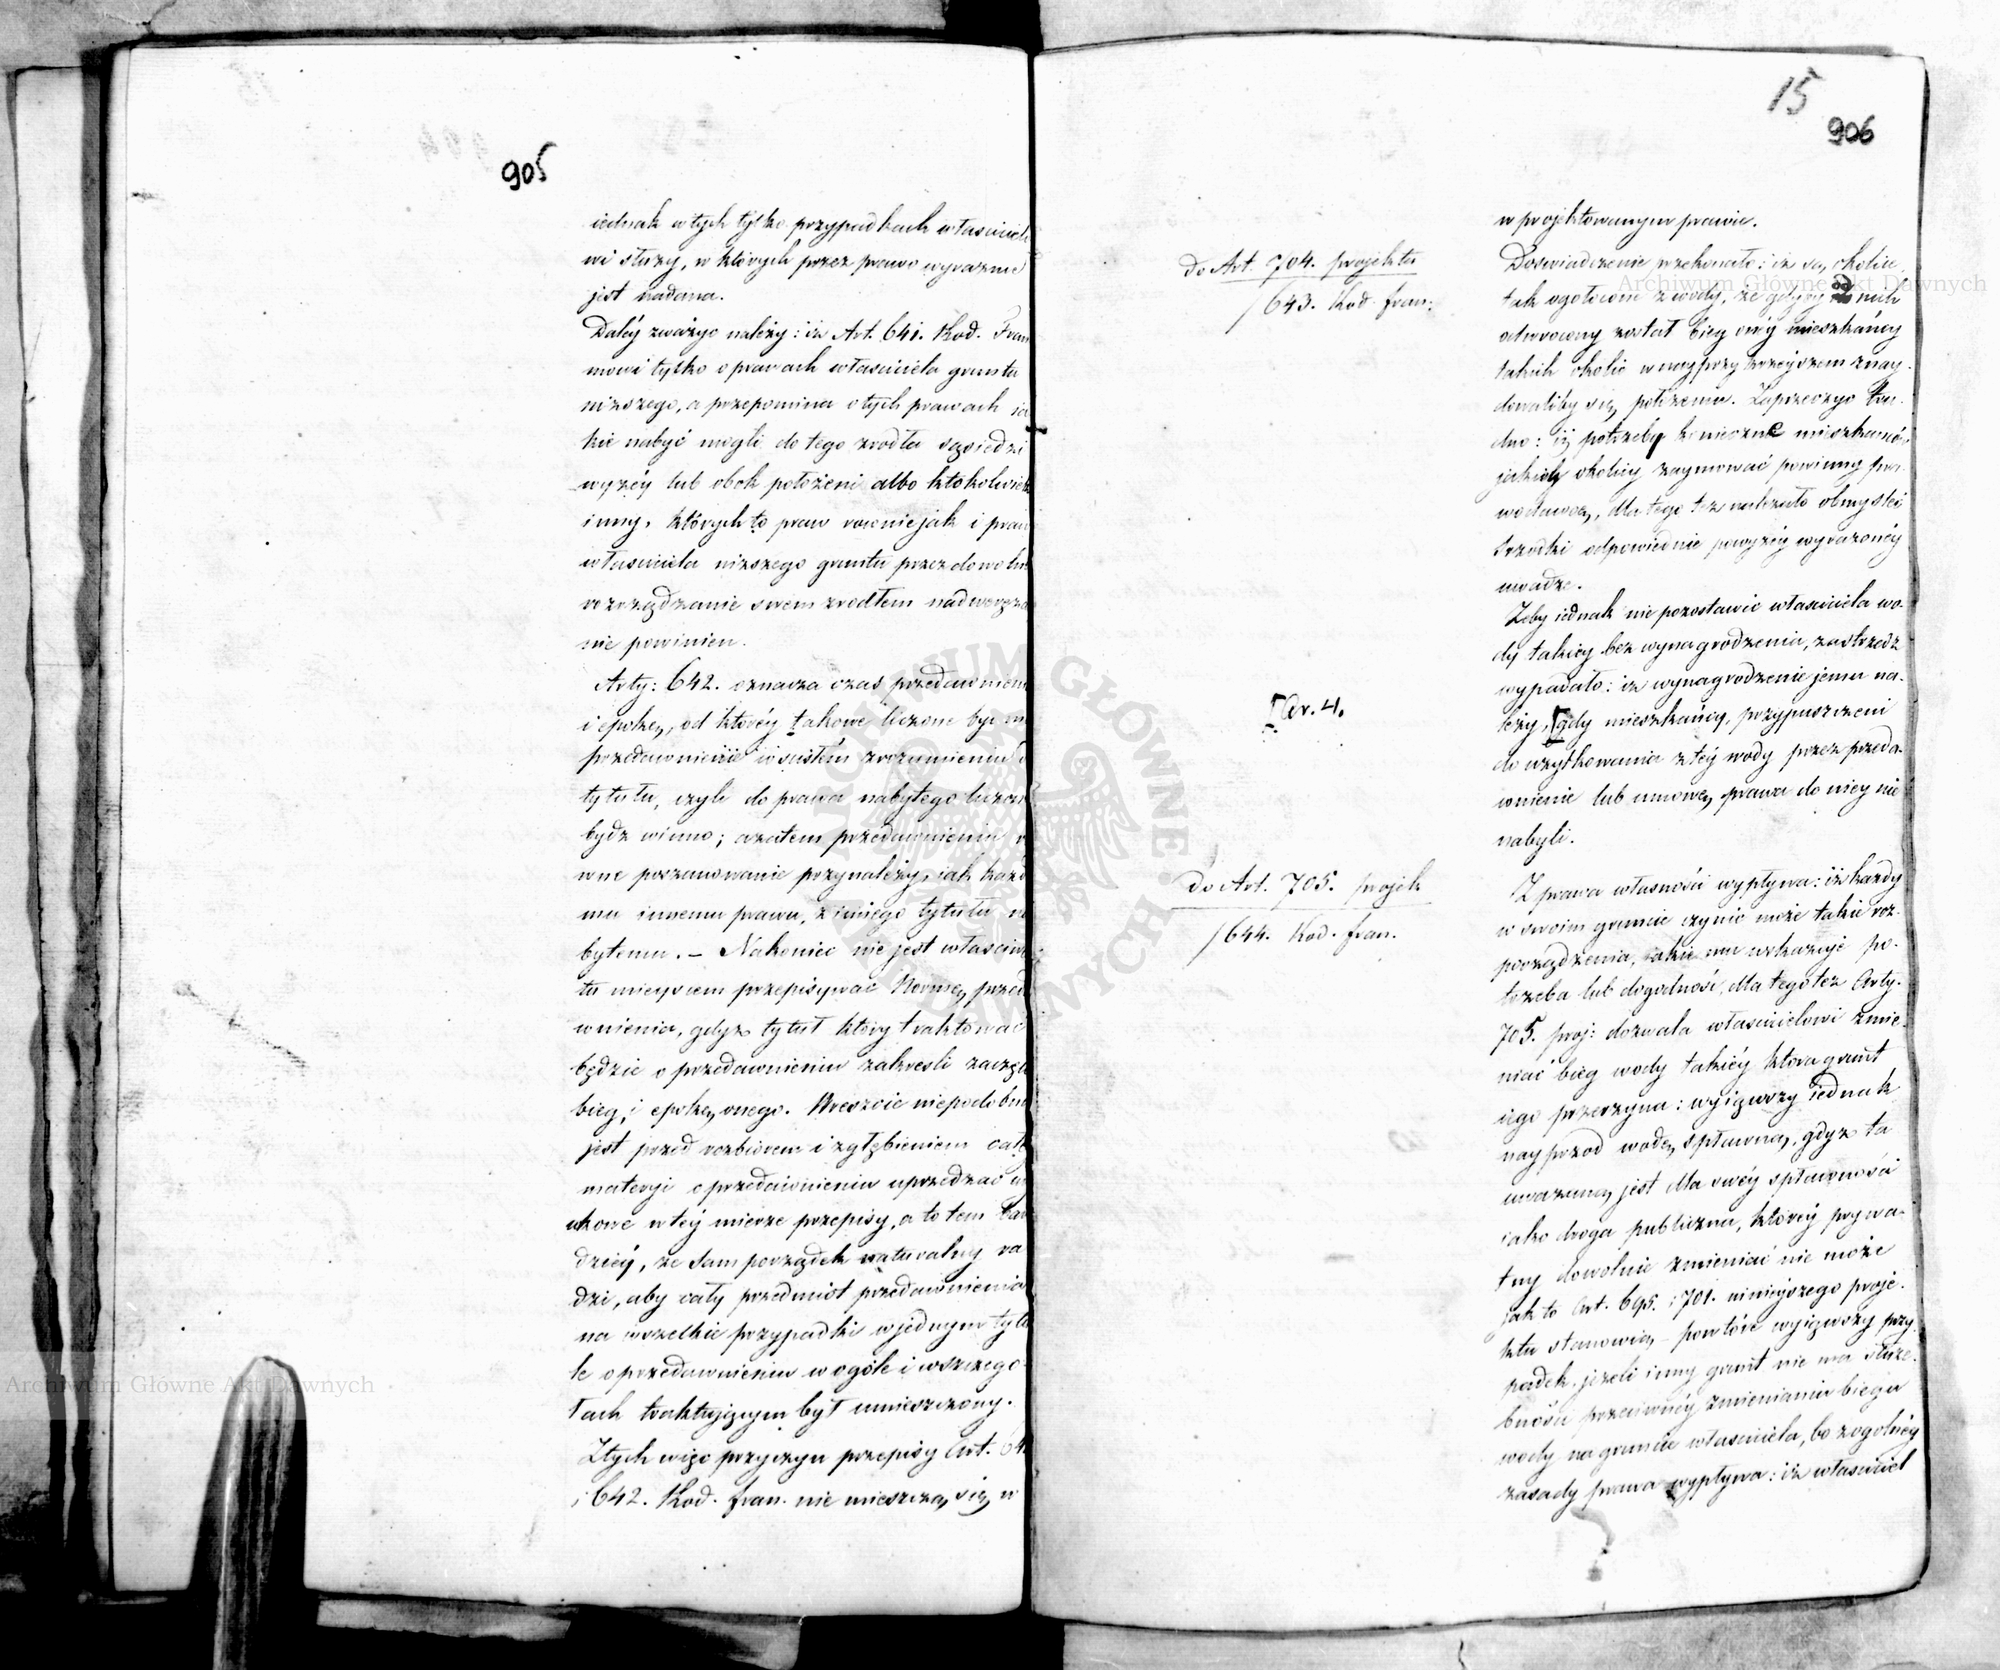 905
iednak w tych tylko przypadkach właściciel
wi służy, w których przez prawo wyraznie
jest nadana.
Daléy zważyć należy: iż Art. 641. Kod. Fran
mówi tylko o prawach właściciela gruntu
niższego, a przepomina o tych prawach ia
kie nabyć mogli do tego zrodła sąsiedzi
wyzéy lub obok położeni albo ktokolwiek
inny, których to praw rownie jak i praw
właściciela niższego gruntu przez dowoln
rozrządzanie swem zrodłem nadweręża
nie powinien.
Arty: 642. oznacza czas przedawnieni
i epokę, od któréy takowe liczone być m
przedawnienie w scisłém zrozumieniu d
tytułu, czyli do prawa nabytego liczon
bydz winno; a zatem przedawnieniu r
wne poszanowanie przynależy, iak każd
mu innemu prawu, z innego tytułu na
bytemu. – Nakoniec nie jest właściwe
tu mieyscem przepisywać Normę przeda
wnienia, gdyż tytuł który traktować
będzie o przedawnieniu zakresli zaczęc
bieg, i epokę onego. Wreszcie niepodobn
jest przed rozbiorem i zgłębieniem całk
materyi o przedawnieniu uprzedzać
tkowe w téy mierze przepisy, a to tem bar
dziéy, że sam porządek naturalny ra
dzi, aby cały przedmiot przedawnienia
na wszelkie przypadki w jednym tytu
le o przedawnieniu w ogóle i wszczegó-
łach traktującym był umieszczony.
Z tych więc przyczyn przepisy Art. 64
i 642. Kod. fran. nie mieszczą się w
15
906
w projektowanym prawie.
do Art. 704. projektu
/643. Kod. fran.
Doswiadczenie przekonało: iż są okolice
tak ogołocone z wody, że gdyby od nich
odwrocony został bieg onéy mieszkańcy
takich okolic w nayprzykrzeyszem znay-
dowaliby się położeniu. Zaprzeczyć tru-
dno: iż potrzeby konieczne mieszkańców
jakiéy okolicy zaymować powinny pra-
wodawcę, dla tego też należało obmyśleć
srzodki odpowiednie powyżéy wyrażonéy
uwadze.
Żeby iednak nie pozostawić właściciela wo-
dy takiey bez wynagrodzenia, zastrzedz
wypadało: iż wynagrodzenie jemu na-
leży, [gdy mieszkańcy, przypuszczeni
[Ar. 4.
do użytkowania z téy wody przez przeda-
wnienie lub umowę prawa do niey nie
nabyli.
do Art. 705. projek
/644. Kod. fran.
Z prawa własności wypływa: iż każdy
w swoim gruncie czynić może takie roz-
porządzenia, jakie mu wskazuje po-
trzeba lub dogodność, dla tego też Arty.
705. proj: dozwala właścicielowi zmie-
niać bieg wody takiéy która grunt
iego przerzyna: wyiąwszy iednak
nayprzod wodę spławną, gdyż ta
uważana jest dla swéy spławności
iako droga publiczna, któréy prywa-
tny dowolnie zmieniać nie może
jak to Art. 695. i 701. niniejszego proje-
ktu stanowią – powtóre wyiąwszy przy-
padek, jeżeli inny grunt nie ma służe-
bności przeciwnéy zmienianiu biegu
wody na gruncie właściciela, bo z ogolnéy
zasady prawa wypływa: iż właściciel
Archiwum Główne Akt Dawnych
Archiwum Główne Akt Dawnych